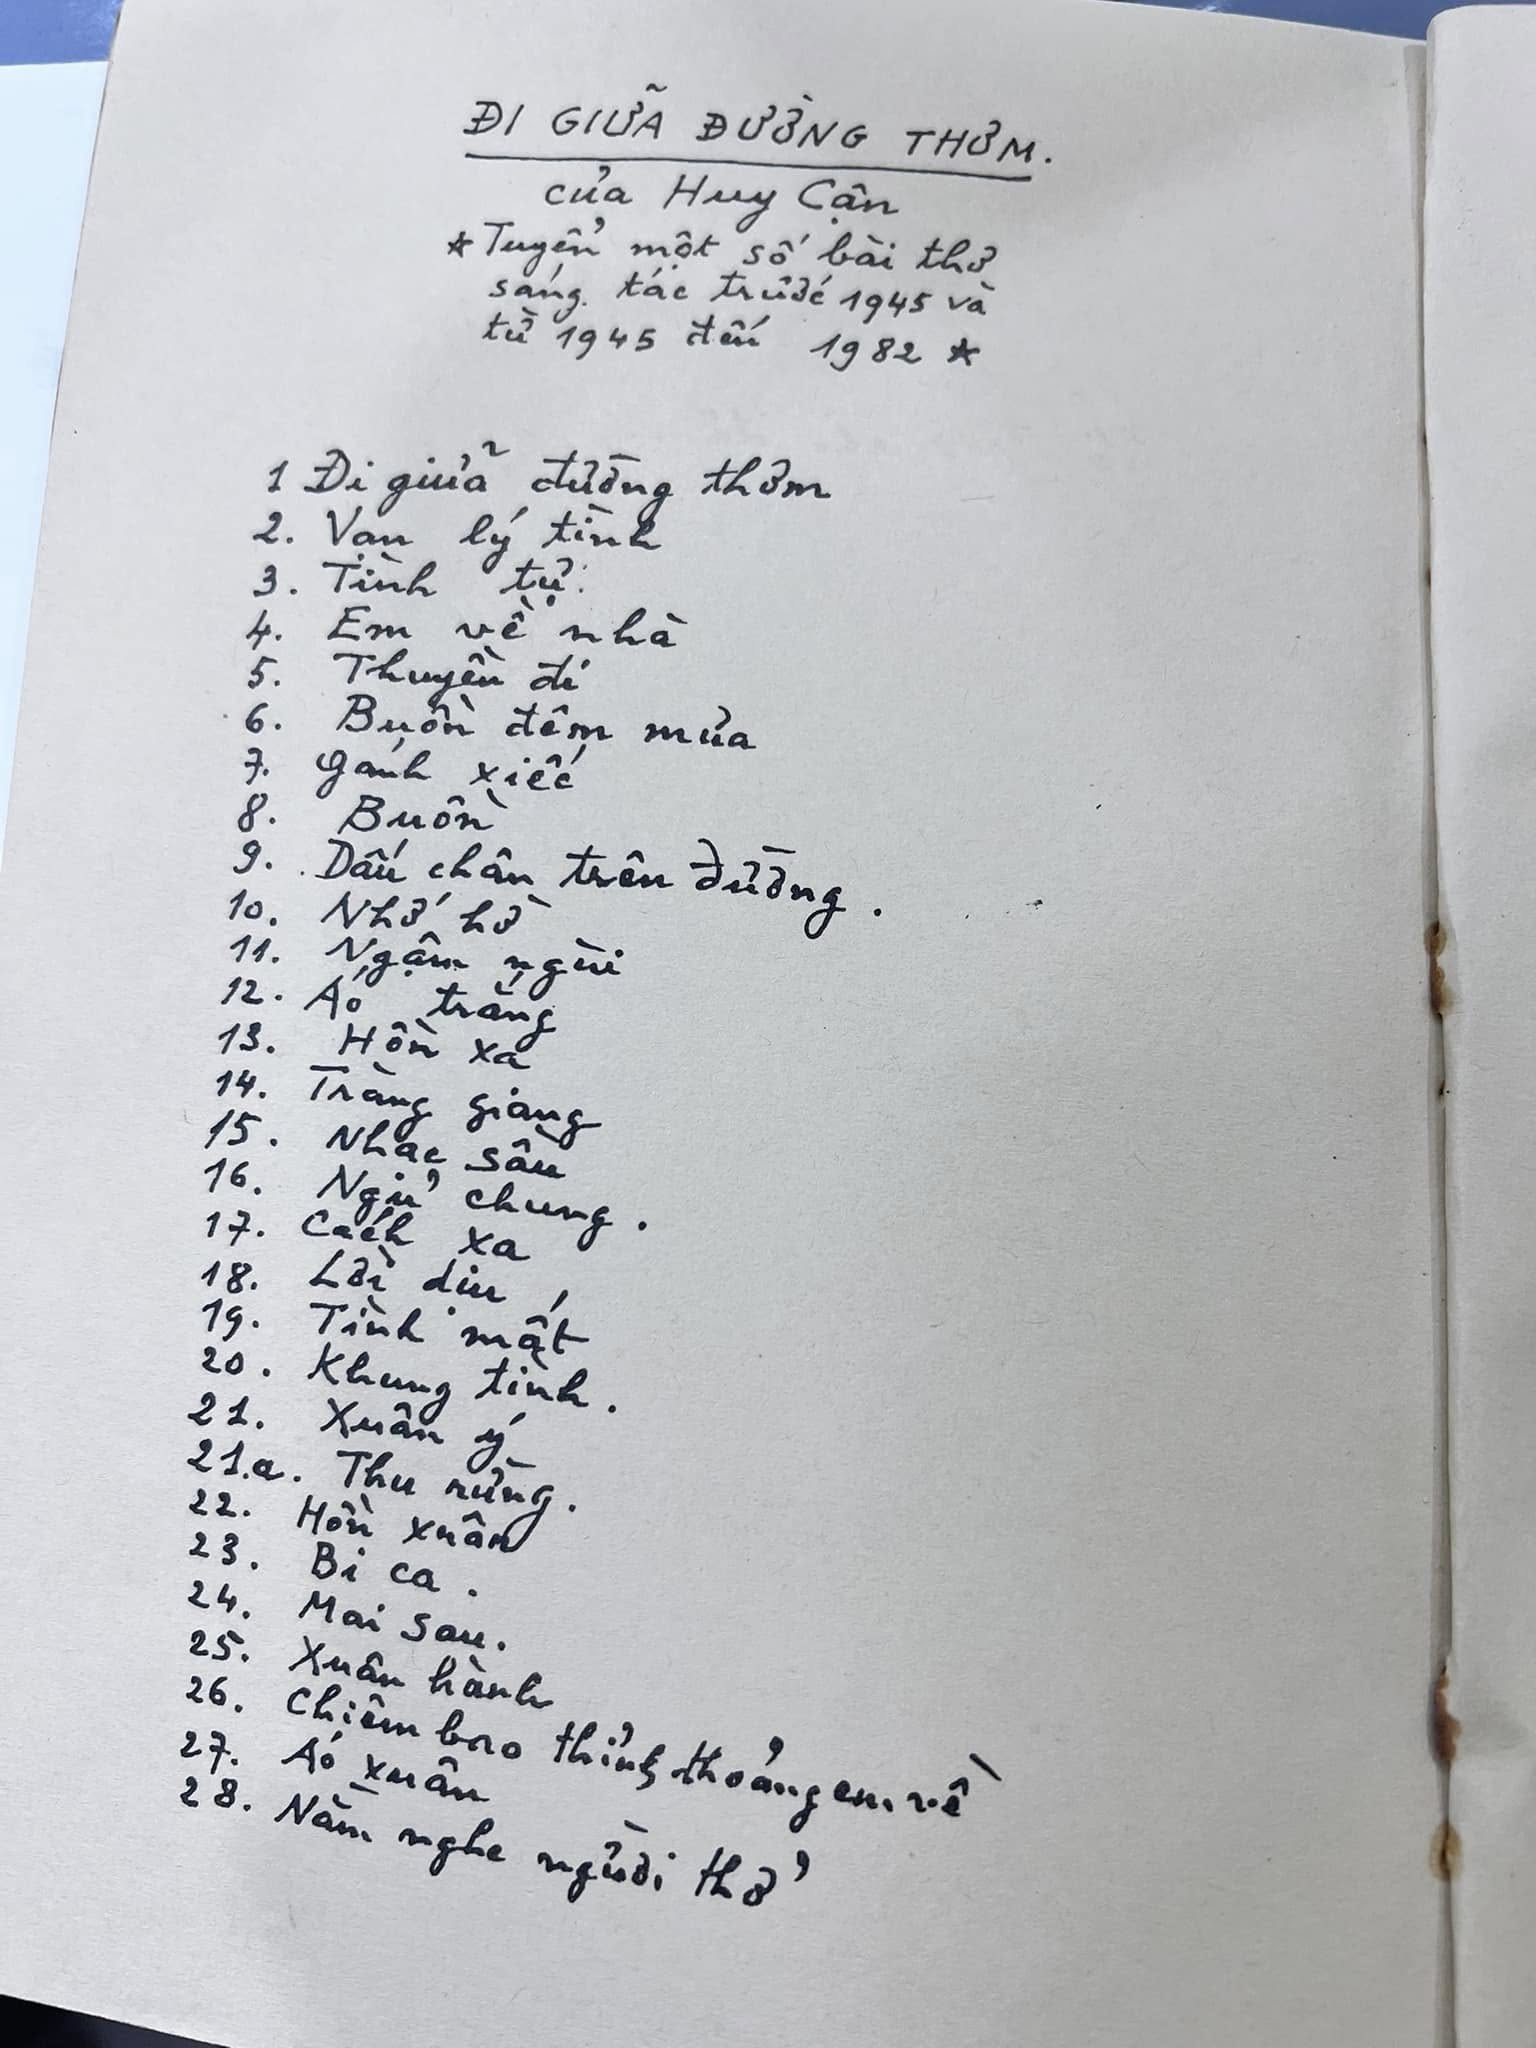 ĐI GIỮA ĐƯỜNG THƠM.
của Huy Cận
* Tuyển một số bài thơ
sáng tác trước 1945 và
từ 1945 đến 1982 *
1 Đi giữa đường thơm
2. Vạn lý tình
3. Tình tự
4. Em về nhà
5. Thuyền đi
6. Buồn đêm mưa
7. Gánh xiếc
8. Buồn
9. Dấu chân trên đường.
10. Nhớ hờ
11. Ngậm ngùi
12. Áo trắng
13. Hồn xa
14. Tràng giang
15. Nhạc sầu
16. Ngủ chung.
17. Cách xa
18. Lời dịu
19. Tình mất
20. Khung tình.
21. Xuân ý
21.a. Thu rừng.
22. Hồn xuân
23. Bi ca.
24. Mai sau.
25. Xuân hành
26. Chiêm bao thỉnh thoảng em về
27. Áo xuân
28. Nằm nghe người thở